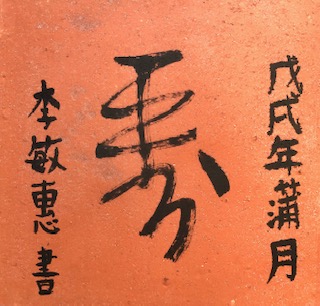 戊戌年蒲月
寿
李敏惠書